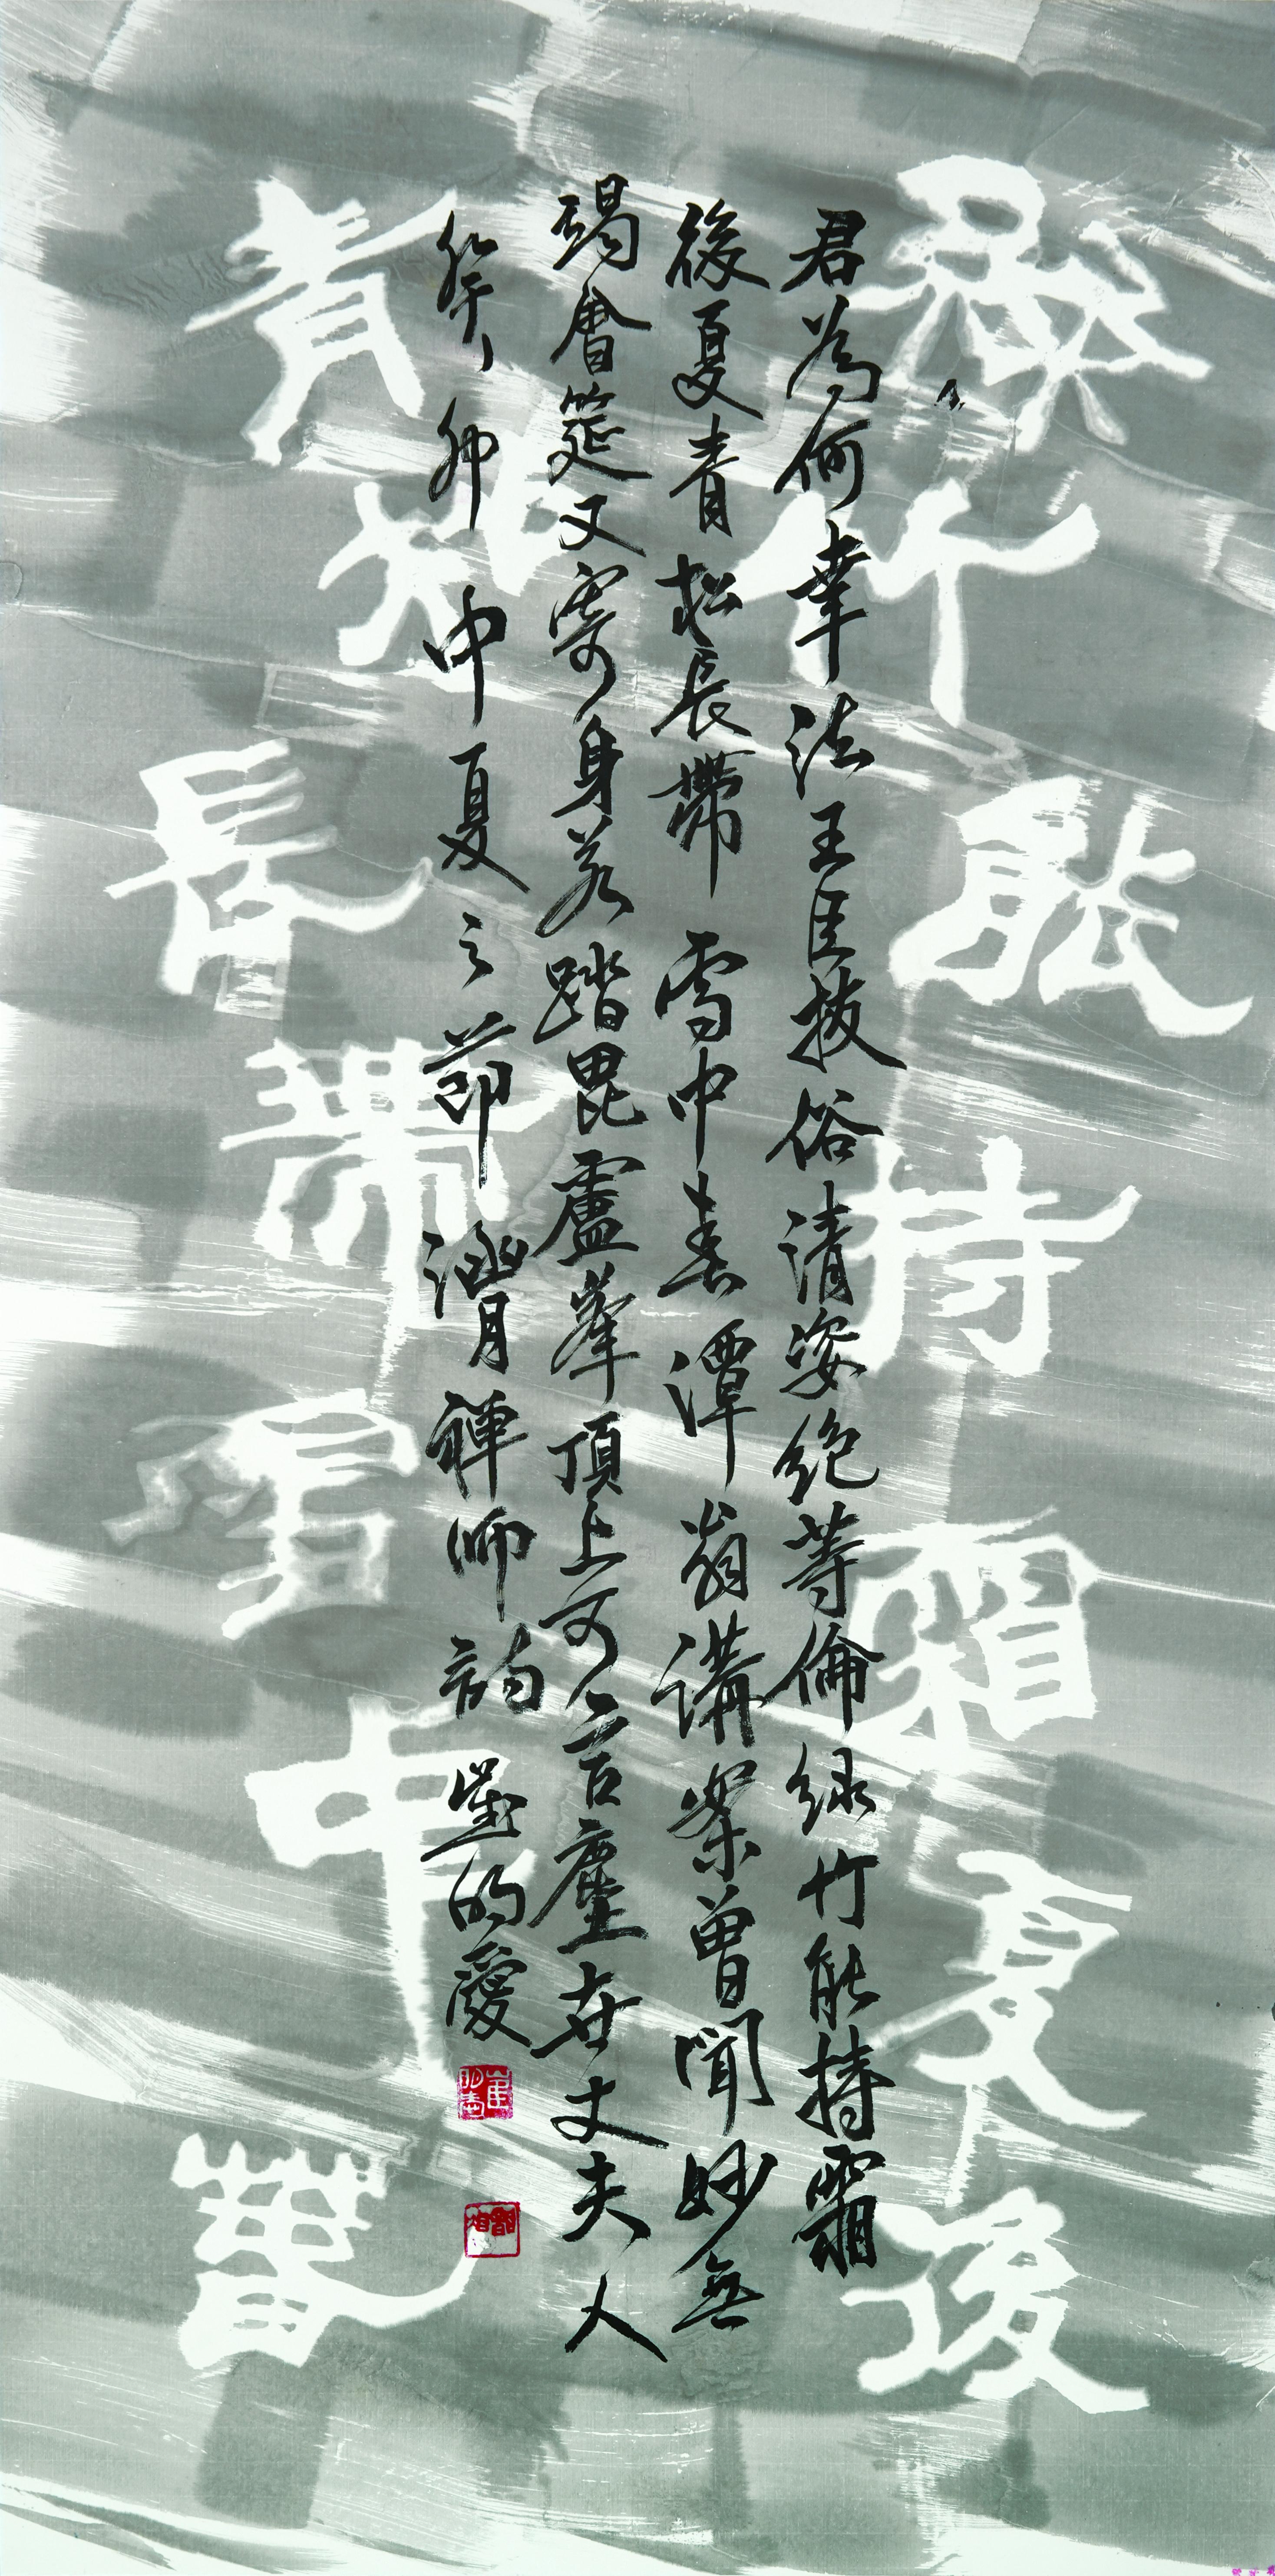 綠竹能持霜夏後
君為何幸法王臣拔俗清姿絕等倫綠竹能持霜
後夏青松長帶雪中春潭翁講案曾聞妙無
竭會筵又寄身若踏毘盧峯頂上可言塵世丈夫人
癸卯中夏之節涵月禅师韵崔的愛
青松長帶雪中春